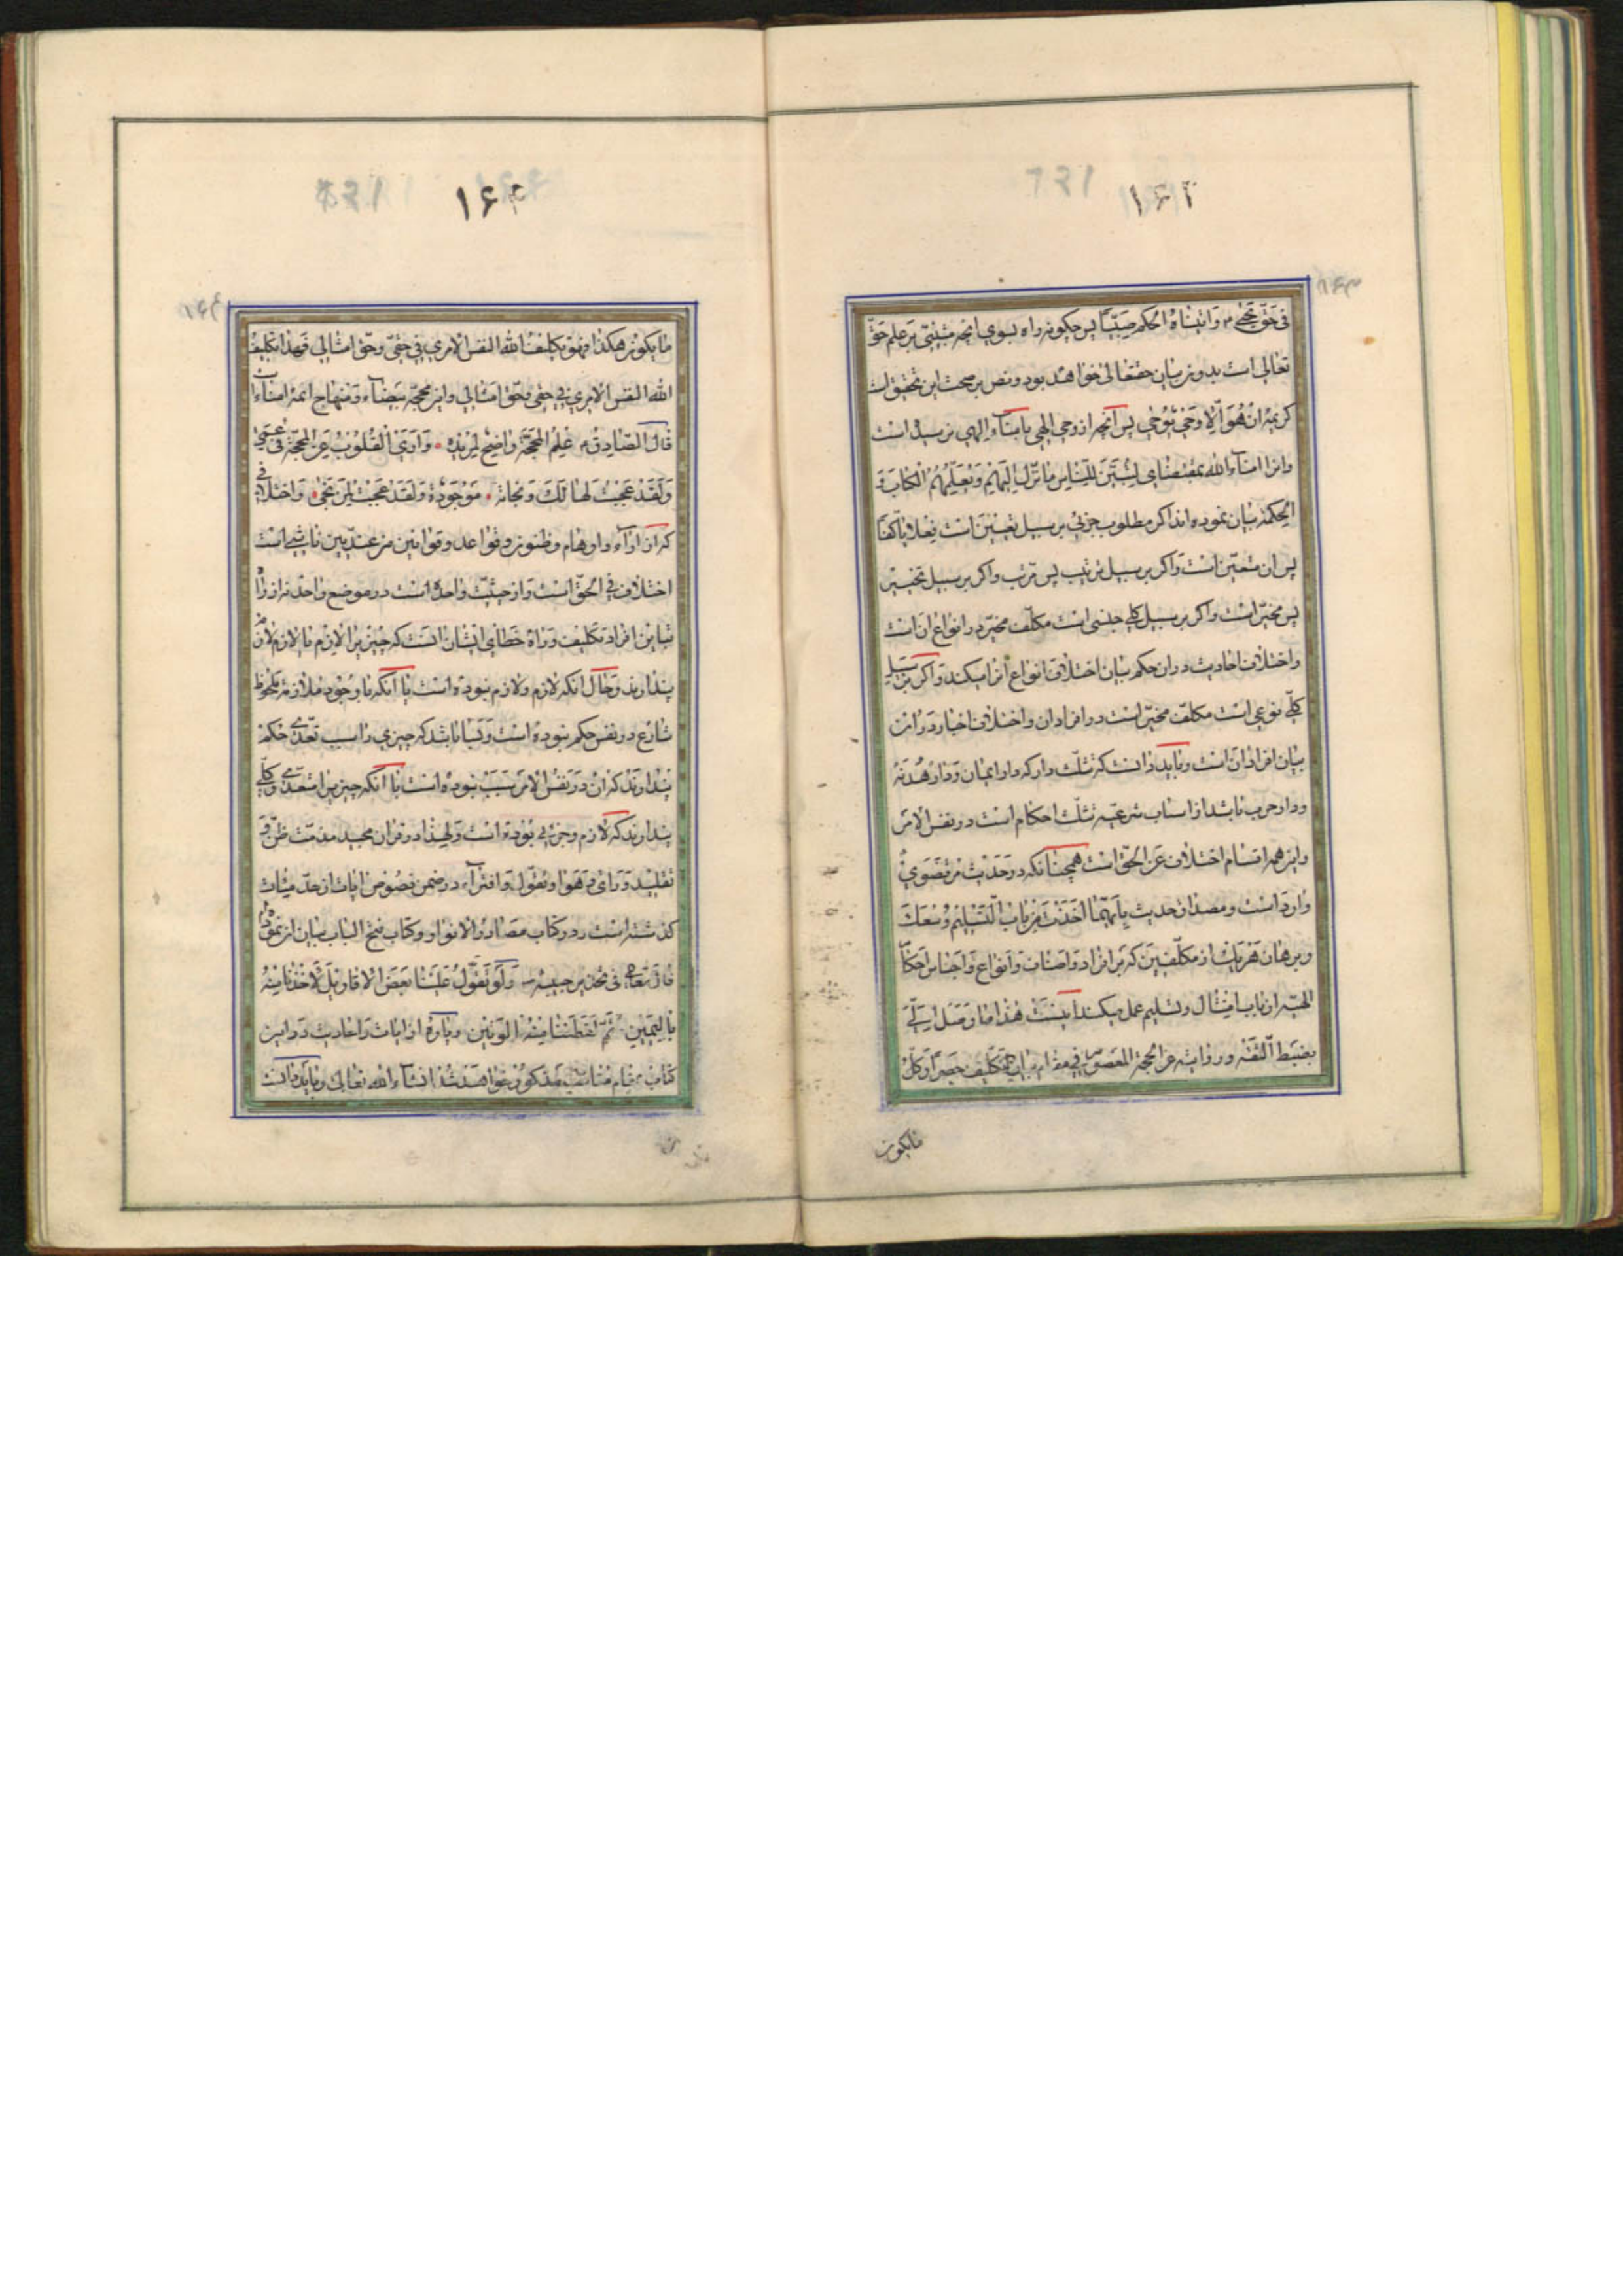 ۱۶۳
فی حق یحیی م وَاتَیْناهُ الحُکمَ صَبِیّاً پس چکونه راه بسوی انچه مبتنی بر علم حق
تعالی است بدون بیان حقتعالی خواهد بود و نص بر صحت این تحقیق است
کریمه اِنْ هُوَ اِلّا وَحْیٌ یُوحٰی پس انچه از وحی الهی بامناء الهی رسیده است
وانرا امناء الله بمقتضای لِتُبَیِّنَ لِلنّاسِ ما نُزِّلَ اِلَیْهِمْ وَیُعَلِّمُهُمُ الْکِتابَ وَ
الحِکمَة بیان نموده اند اکر مطلوب جزئی بر سبیل تعیین است فعلا یا کفاً
پس ان متعیّن است واکر بر سبیل ترتیب پس مرتّب واکر بر سبیل تخییر
پس مخیّر است واکر بر سبیل کلی جنسی است مکلّف مخیّر در انواع ان است
واختلاف احادیث در ان حکم بیان اختلاف انواع انرا میکند واکر بر سبیل
کلّی نوعی است مکلّف مخیّر است در افراد ان واختلاف اخبار در ان
بیان افراد ان است وباید دانست که تثلّث دار که دار ایمان ودار هُدنه
ودار حرب باشد از اسباب شرعیه تثلّث احکام است در نفس الامر
واین همه اقسام اختلاف عن الحقّ است همچنانکه در حدیث مرتضوی
وارد است ومصداق حدیث بِاَیِّهِما اَخَذْتَ مِنْ بابِ التَّسْلِیمِ وَسِعَکَ
وبرهان هر یک از مکلّفین که بر افراد واصناف وانواع واجناس احکام
الهیّه از باب امتثال وتسلیم عمل میکند اینست هذا ما وصل اِلَیَّ
بضبط الثقه وروایته عن الحجة المعصوم فی مقام بیان التکلیف حصراً وکلّ
مایکون
۱۶۴
ما یکون هکذا فهو تکلیف الله النفس الامری فی حقّی وحقّ امثالی فهذا تکلیف
الله النفس الامری فی حقی وحقّ امثالی واین محجّه بیضاء ومنهاج ائمه امناء است
قالَ الصّادِقُ م عَلَمُ المَحَجَّةِ واضِحٌ لِمُریدِهِ • وَاَرَی القُلُوبَ عَنِ المَحَجَّةِ فی عَمیً
وَلَقَدْ عَجِبْتُ لِهالِکٍ وَنَجاتُهُ • مَوْجُودَةٌ وَلَقَدْ عَجِبْتُ لِمَنْ نَجٰی • واختلافی
که از اراء واوهام وظنون وقواعد وقوانین من عندیین ناشی است
اختلاف فی الحقّ است واز حیثیّت واحده است در موضع واحد نه از راه
تباین افراد تکلیف وراه خطای ایشان انست که چیزیرا لازم یا لازم لازم
پندارند وحال انکه لازم ولازم نبوده است یا انکه با وجود ملازمه ملحوظ
شارع در نفس حکم نبوده است وبسا باشد که چیزی را سبب تعدّی حکم
پندارند که ان در نفس الامر سبب نبوده است یا انکه چیزیرا متعدّی وکلّی
پندارند که لازم وجزئی بوده است ولهذا در قران مجید مذمّت ظنّ و
تقلید ورای وهوا وتقوّل وافتراء در ضمن نصوص ایات از حدّ میئات
کذشته است ودر کتاب مصادر الانوار وکتاب فتح الباب بیان ان نموده
قالَ تَعالی فی تحذیر حبیبه وَلَوْ تَقَوَّلَ عَلَیْنا بَعْضَ الاقاویلِ لَاَخَذْنا مِنْهُ
بِالیَمینِ ثُمَّ لَقَطَعْنا مِنْهُ الوَتینَ وپاره از ایات واحادیث در این
کتاب بمقام مناسب مذکور خواهد شد انشاء الله تعالی وباید دانست